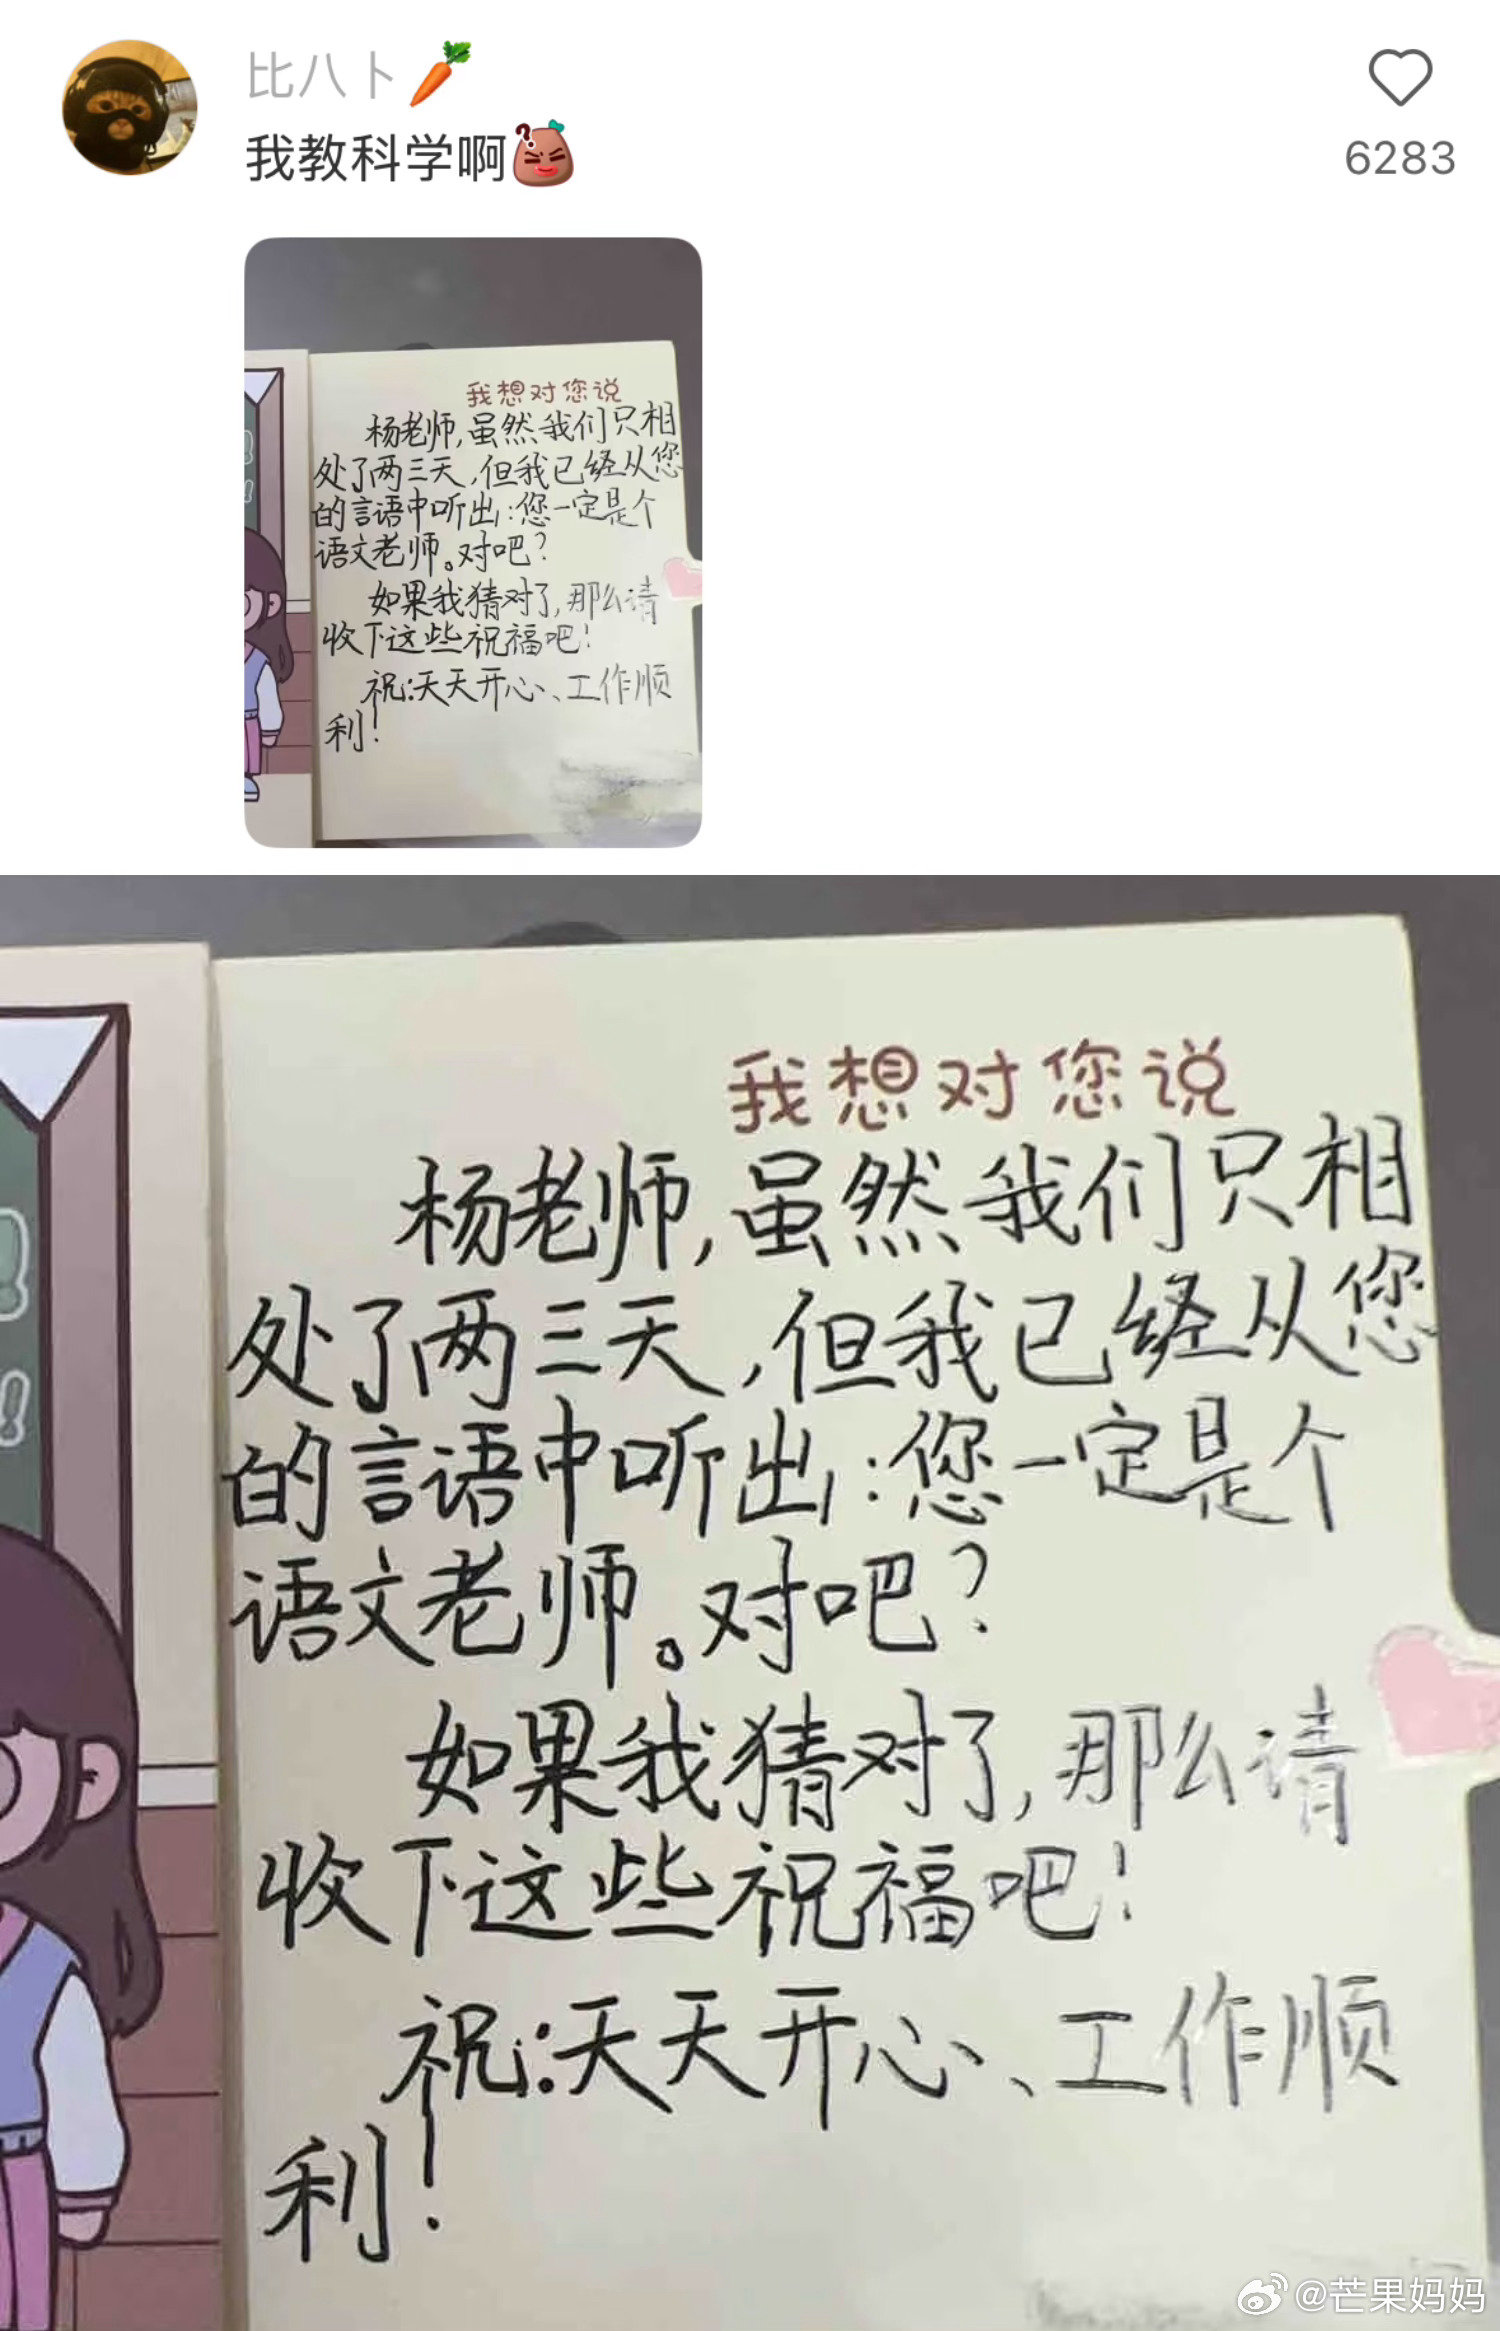 比八卜🥕
我教科学啊
6283
我想对您说
杨老师,虽然我们只相
处了两三天,但我已经从您
的言语中听出:您一定是个
语文老师。对吧?
如果我猜对了,那么请
收下这些祝福吧!
祝:天天开心、工作顺
利!
我想对您说
杨老师,虽然我们只相
处了两三天,但我已经从您
的言语中听出:您一定是个
语文老师。对吧?
如果我猜对了,那么请
收下这些祝福吧!
祝:天天开心、工作顺
利!
@芒果妈妈